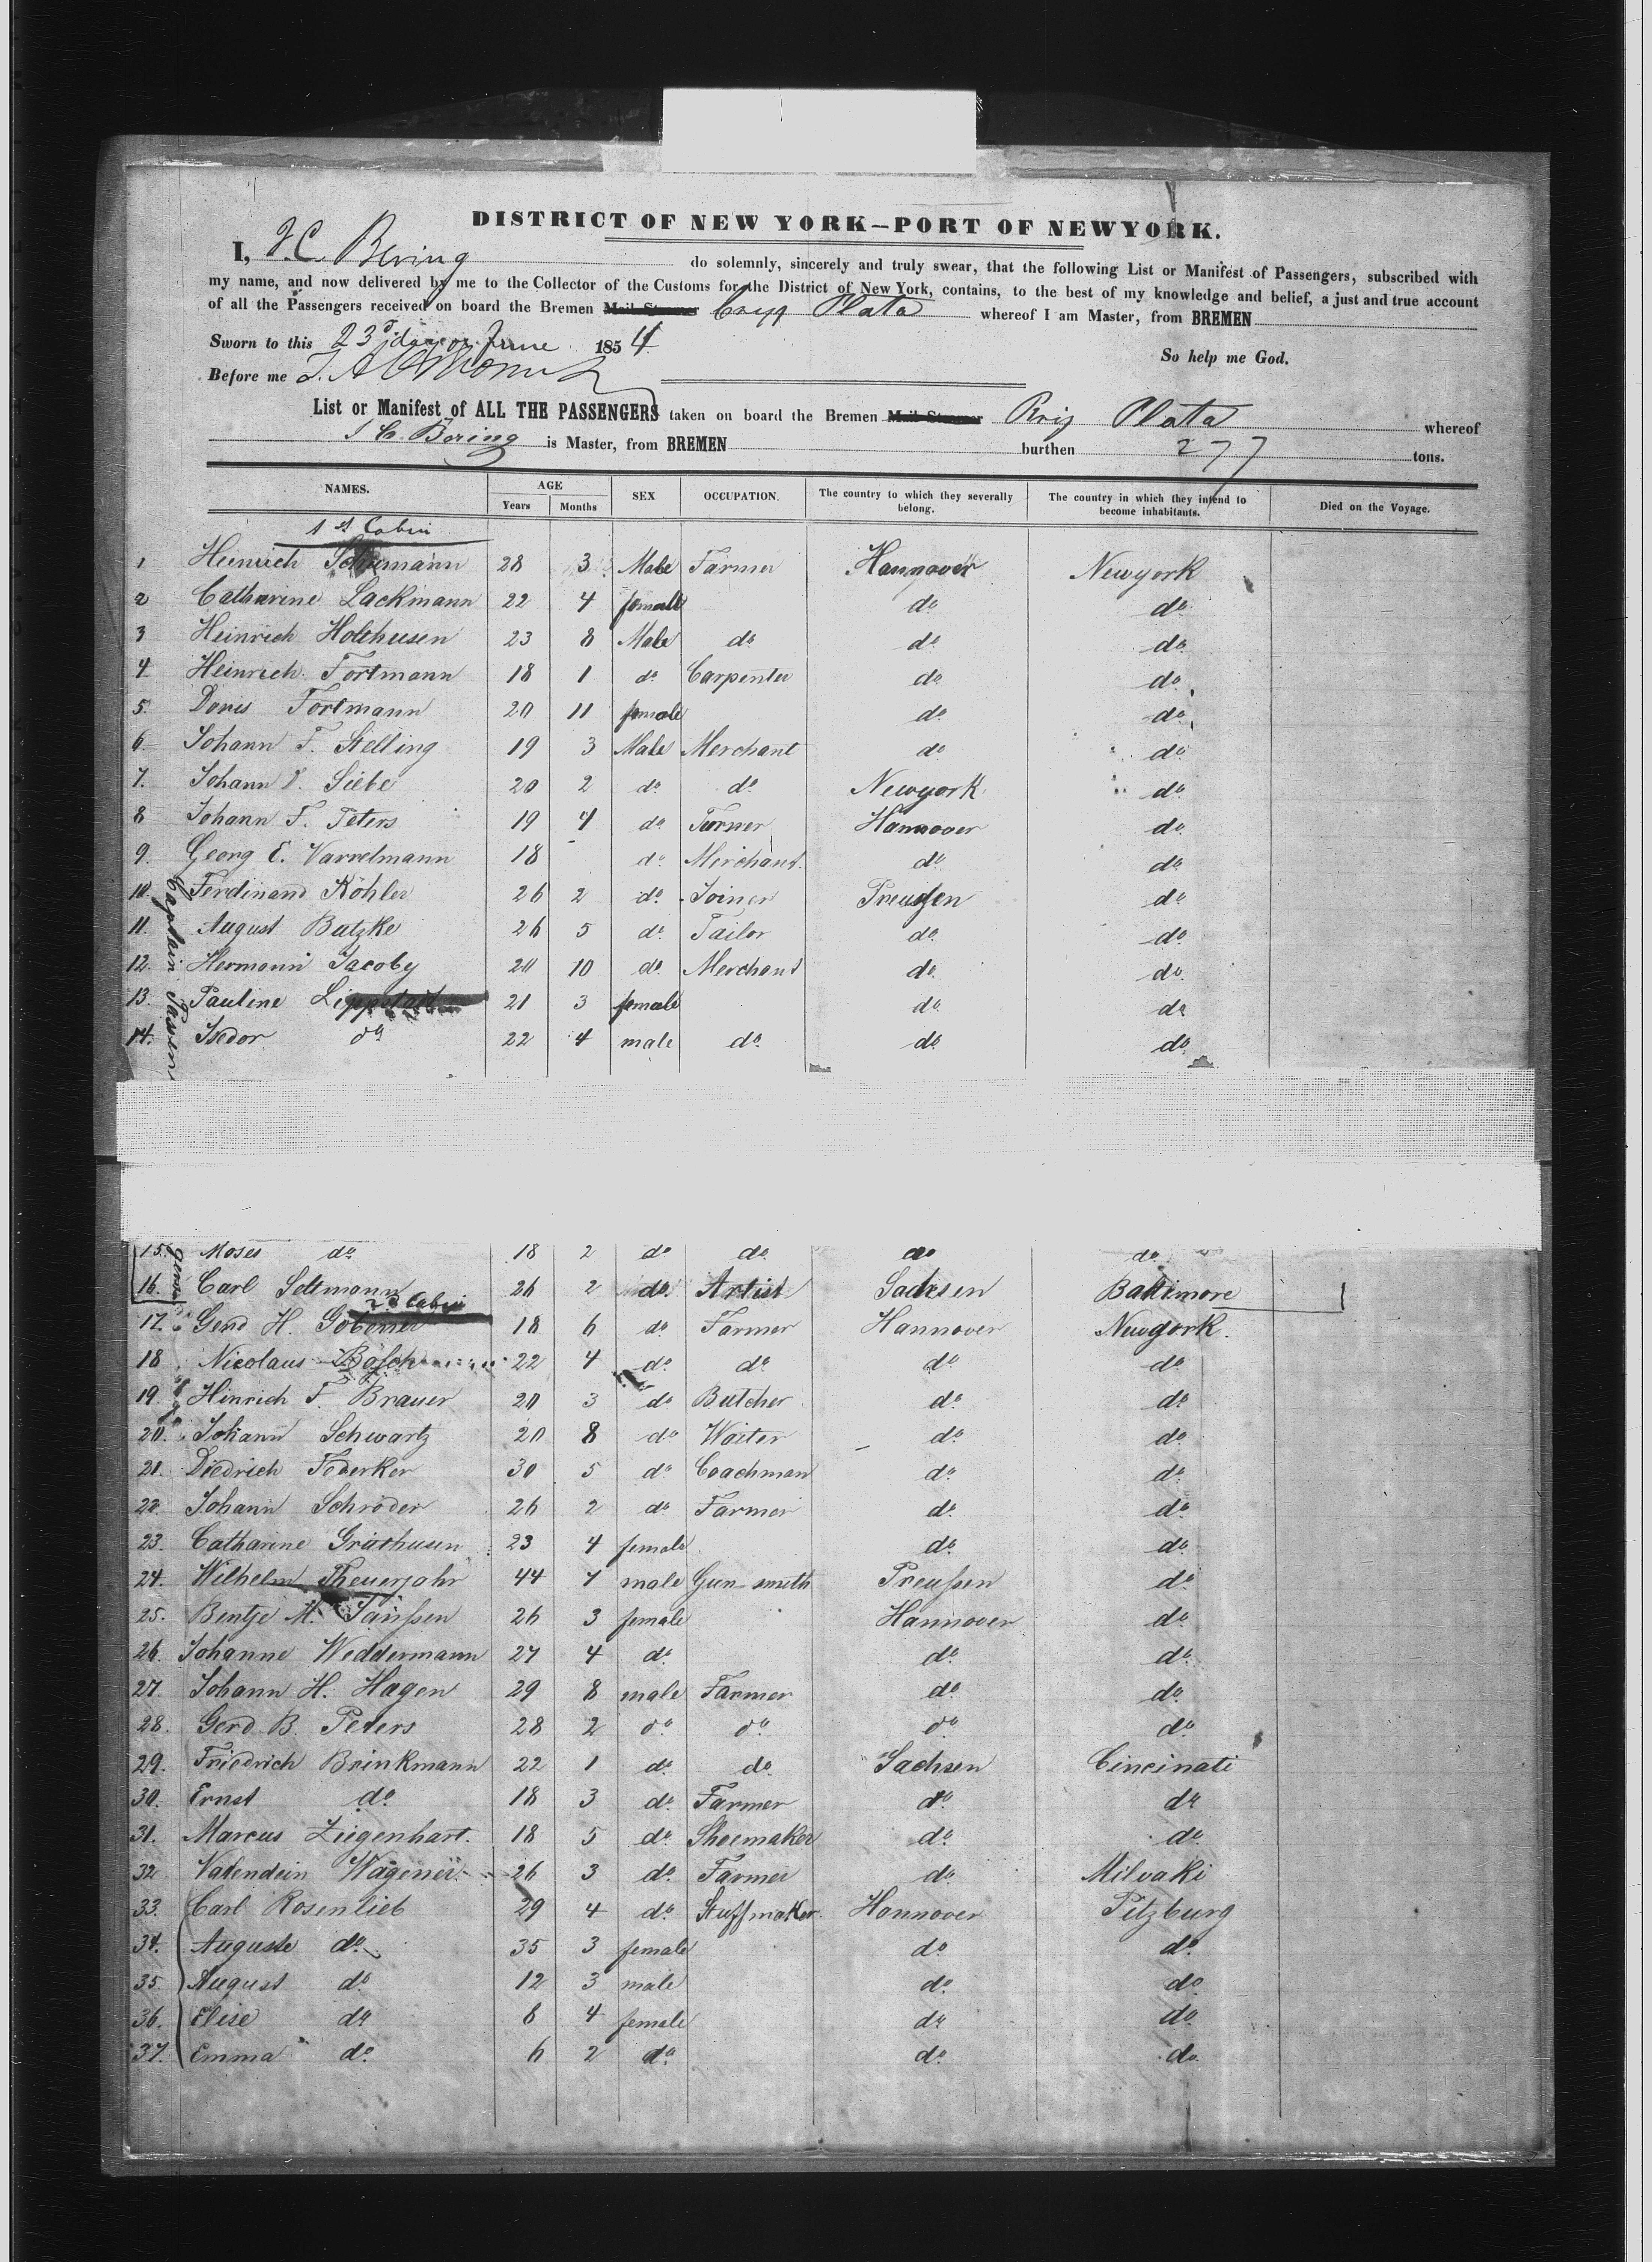 DISTRICT OF NEW YORK—PORT OF NEWYORK.
I, J.C. Bering do solemnly, sincerely and truly swear, that the following List or Manifest of Passengers, subscribed with
my name, and now delivered by me to the Collector of the Customs for the District of New York, contains, to the best of my knowledge and belief, a just and true account
of all the Passengers received on board the Bremen Mail Steamer Brigg Plata whereof I am Master, from BREMEN
Sworn to this 23d day of June 1854
So help me God.
Before me
List or Manifest of ALL THE PASSENGERS taken on board the Bremen Mail Steamer Brig Plata whereof
J C. Bering is Master, from BREMEN burthen 277 tons.
NAMES. AGE Years Months SEX OCCUPATION. The country to which they severally belong. The country in which they intend to become inhabitants. Died on the Voyage.
1st Cabin
1 Heinrich Schumann 28 3 Male Farmer Hannover Newyork
2 Catharine Lackmann 22 4 female do do
3 Heinrich Holthusen 23 8 Male do do do
4 Heinrich Fortmann 18 1 do Carpenter do do
5. Doris Fortmann 20 11 female do do
6. Johann F. Stelling 19 3 Male Merchant do do
7. Johann Siebe 20 2 do do Newyork do
8 Johann F. Peters 19 4 do Farmer Hannover do
9. Georg E. Varrelmann 18 do Merchant. do do
10. Ferdinand Köhler 26 2 do Joiner Preußen do
11. August Butzke 26 5 do Tailor do do
12. Hermann Jacoby 20 10 do Merchant do do
13. Pauline Lippstadt 21 3 female do do
14. Isedor do 22 4 male do do do
15. Moses do 18 2 do do do do
16. Carl Seltmann 26 2 do Artist Sachsen Baltimore
2d Cabin
17. Gerd H. 18 6 do Farmer Hannover Newyork.
18. Nicolaus Bösch 22 4 do do do do
19. Hinrich F. Brauer 20 3 do Butcher do do
20. Johann Schwartz 20 8 do Waiter do do
21. Diedrich Federker 30 5 do Coachman do do
22. Johann Schröder 26 2 do Farmer do do
23. Catharine Grathusen 23 4 female do do
24. Wilhelm Theuerjahr 44 7 male Gun-smith Preußen do
25. Bentje M. Janßen 26 3 female Hannover do
26. Johanne Weddermann 27 4 do do do
27. Johann H. Hagen 29 8 male Farmer do do
28. Gerd B. Peters 28 2 do do do do
29. Friedrich Brinkmann 22 1 do do Sachsen Cincinati
30. Ernst do 18 3 do Farmer do do
31. Marcus Ziegenhart. 18 5 do Shoemaker do do
32 Valendein Wagener 26 3 do Farmer do Milvaki
33. Carl Rosenlieb 29 4 do Stuffmaker Hannover Pitzburg
34. Auguste do 35 3 female do do
35. August do 12 3 male do do
36. Elise do 8 4 female do do
37. Emma do 6 2 do do do
Captain